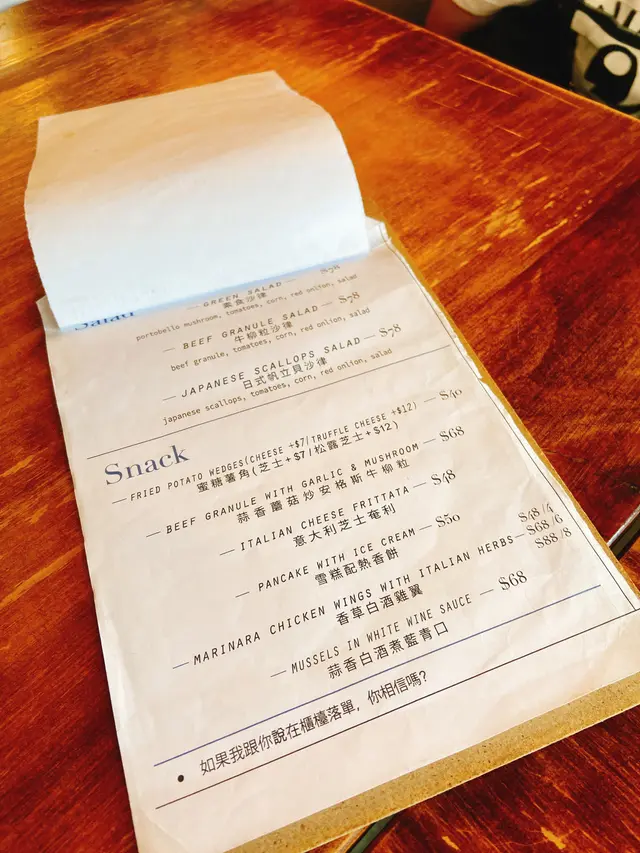 Salad
— GREEN SALAD —
素食沙律
portobello mushroom, tomatoes, corn, red onlion, salad
— BEEF GRANULE SALAD — $78
牛柳粒沙律
beef granule, tomatoes, corn, red onlion, salad
— JAPANESE SCALLOPS SALAD — $78
日式帆立貝沙律
japanese scallops, tomatoes, corn, red onlion, salad
Snack
— FRIED POTATO WEDGES(CHEESE +$7/TRUFFLE CHEESE +$12) — $40
蜜糖薯角(芝士+$7/松露芝士+$12)
— BEEF GRANULE WITH GARLIC & MUSHROOM — $68
蒜香蘑菇炒安格斯牛柳粒
— ITALIAN CHEESE FRITTATA — $48
意大利芝士奄利
— PANCAKE WITH ICE CREAM — $50
雪糕配熱香餅
— MARINARA CHICKEN WINGS WITH ITALIAN HERBS — $48/4 $68/6 $88/8
香草白酒雞翼
— MUSSELS IN WHITE WINE SAUCE — $68
蒜香白酒煮藍青口
• 如果我跟你說在櫃檯落單，你相信嗎?